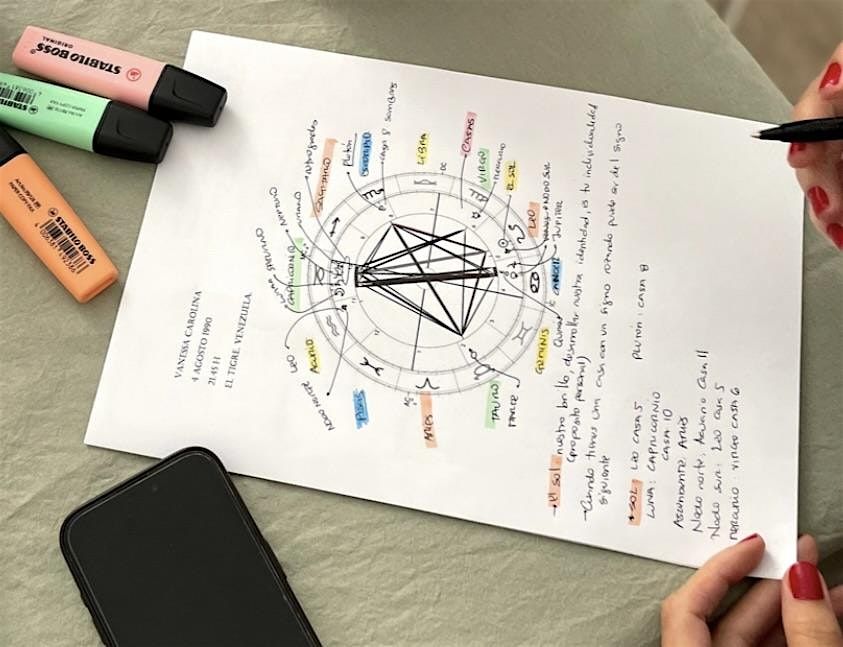 STABILO BOSS
ORIGINAL
STABILO BOSS
STABILO BOSS
VANESSA CAROLINA
4 AGOSTO 1990
21:45 H
EL TIGRE, VENEZUELA
SAGITARIO
retrogrado
Plutón
ESCORPIO
casa 8
LIBRA
CASAS
VIRGO
mercurio
EL SOL
LEO
NODO SUR
JUPITER
CANCER
GEMINIS
TAURO
MARTE
ARIES
PISCIS
NODO NORTE
ACUARIO
CAPRICORNIO
LUNA
SATURNO
NEPTUNO
URANO
DC
IC
AC
→ El sol: nuestro brillo, desarrollar nuestra identidad, es tu individualidad
(propósito personal)
→ Cuando tienes una casa con un signo rotando puede ser del signo
siguiente
SOL: LEO CASA 5
PLUTÓN: CASA 8
LUNA: CAPRICORNIO
CASA 10
Ascendente: Aries
Nodo norte: Acuario casa 11
Nodo sur: Leo casa 5
mercurio: VIRGO CASA 6